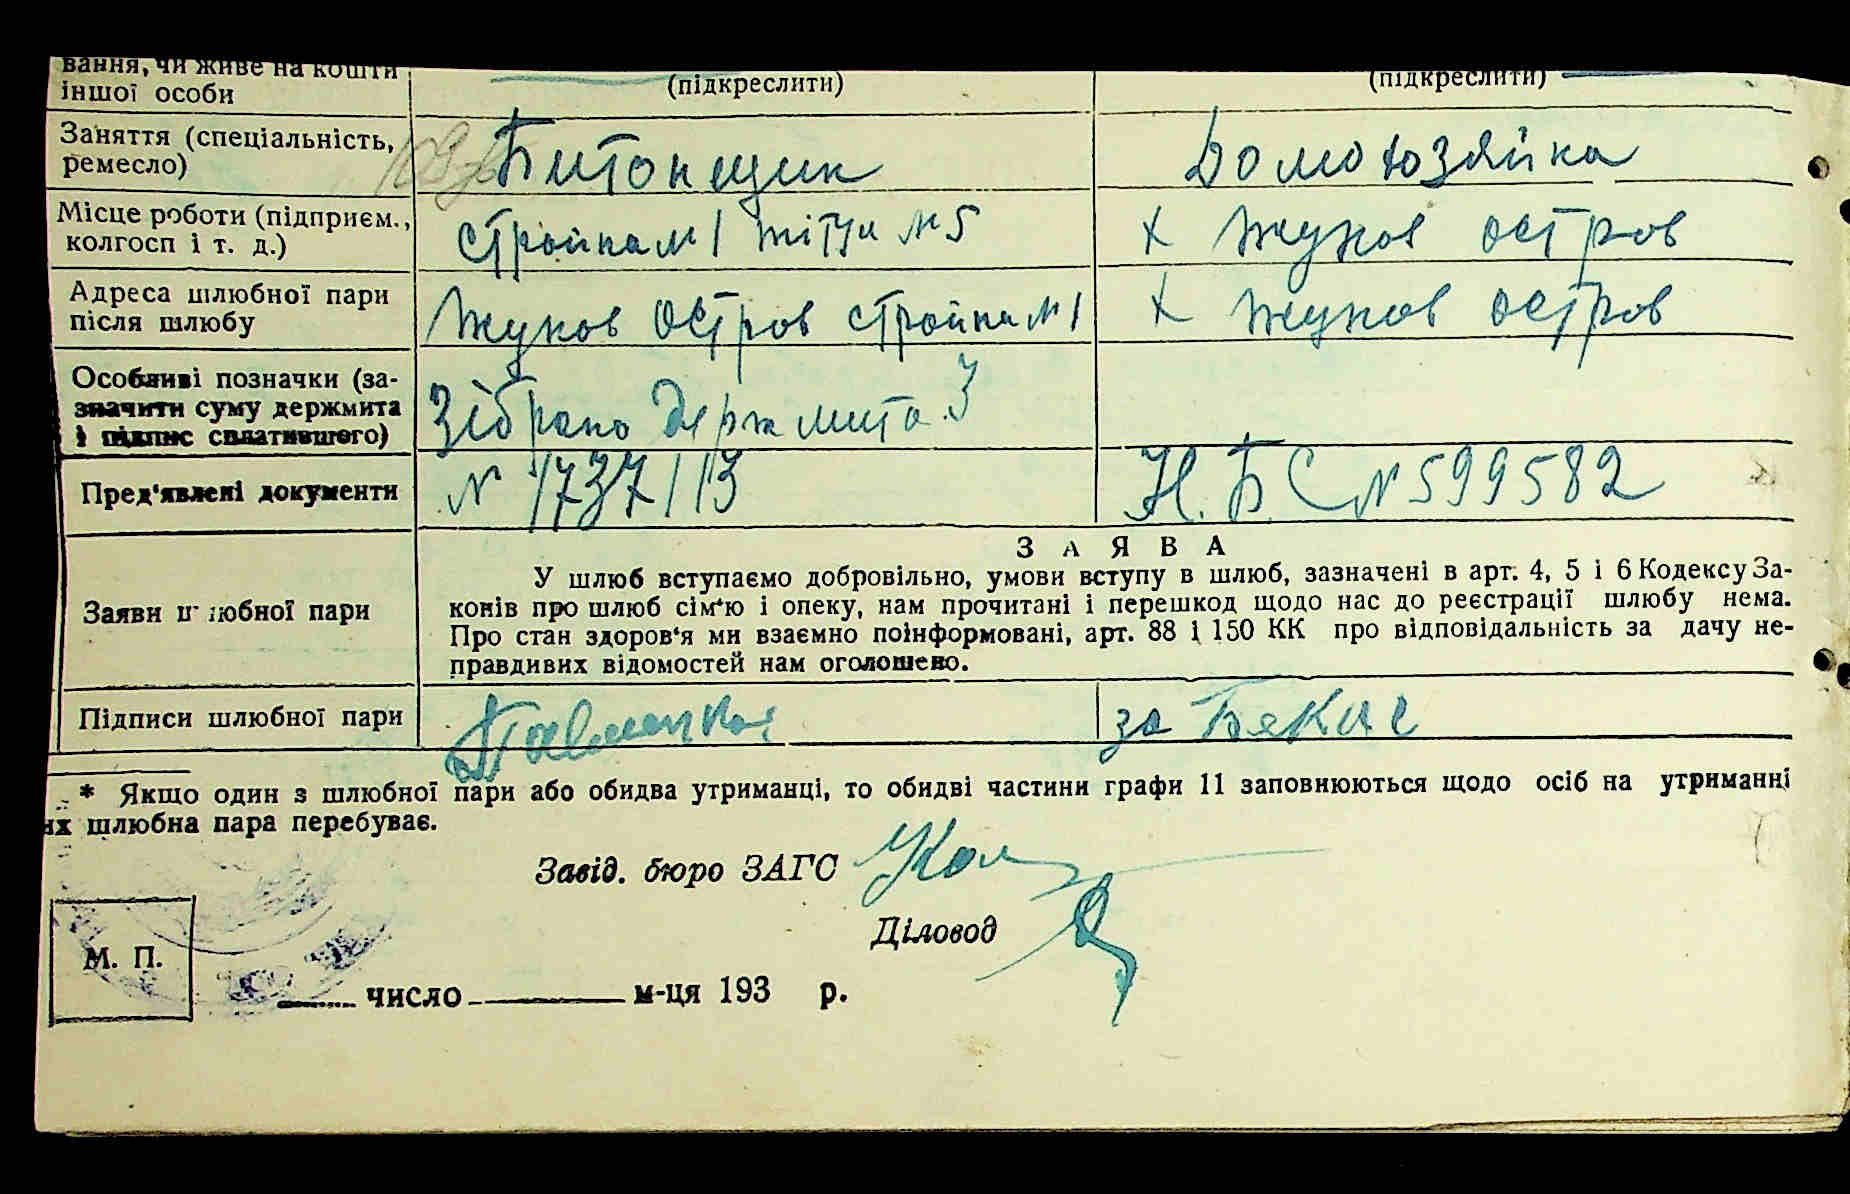 вання, чи живе на кошти
іншої особи
(підкреслити)
(підкреслити)
Заняття (спеціальність,
ремесло)
Битонщик
Домохозяйка
Місце роботи (підприєм.,
колгосп і т. д.)
Стройка №1 №5
х Жуков остров
Адреса шлюбної пари
після шлюбу
Жуков остров стройка №1
х Жуков остров
Особливі позначки (за-
значити суму держмита
і підпис сплатившого)
Зібрано держмита 3
Пред'явлені документи
№ 1737113
Н. Б С №599582
ЗАЯВА
Заяви шлюбної пари
У шлюб вступаємо добровільно, умови вступу в шлюб, зазначені в арт. 4, 5 і 6 Кодексу За-
конів про шлюб сім'ю і опеку, нам прочитані і перешкод щодо нас до реєстрації шлюбу нема.
Про стан здоров'я ми взаємно поінформовані, арт. 88 і 150 КК про відповідальність за дачу не-
правдивих відомостей нам оголошено.
Підписи шлюбної пари
за Бекас
* Якщо один з шлюбної пари або обидва утриманці, то обидві частини графи 11 заповнюються щодо осіб на утриманні
их шлюбна пара перебуває.
Завід. бюро ЗАГС
Діловод
М. П.
число м-ця 193 р.